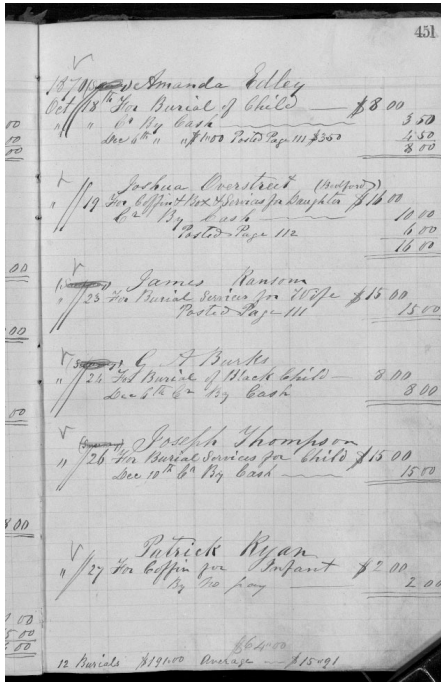 451
1870 Amanda Edley
Oct 18th For Burial of Child $8 00
" " Cr By Cash 3 50
Dec 6th " " $1.00 Posted Page 111 $350 4 50
8 00
Joshua Overstreet (Bedford)
" 19 For Coffin & Box & Services for Daughter $16 00
Cr By Cash 10 00
Posted Page 112 6 00
16 00
James Ransom
" 23 For Burial Services for Wife $15.00
Posted Page 111 15 00
G A Burks
" 24 For Burial of Black Child 8.00
Dec 6th Cr By Cash 8 00
Joseph Thompson
" 26 For Burial Services for Child $15 00
Dec 10th Cr By Cash 15 00
Patrick Ryan
" 27 For Coffin for Infant $2 00
By No pay 2 00
$64.00
12 Burials $191.00 Average $15.91